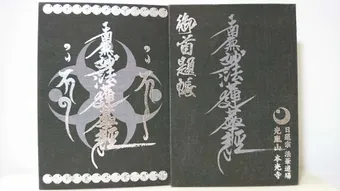 南無妙法蓮華經
御首題帳
南無妙法蓮華經
日蓮宗 法華道場
光胤山 本光寺